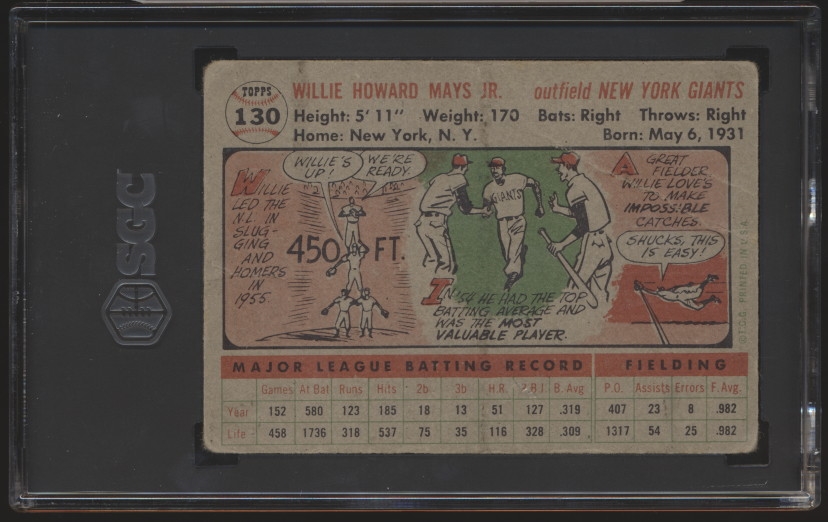 SGC
TOPPS
130
WILLIE HOWARD MAYS JR. outfield NEW YORK GIANTS
Height: 5' 11" Weight: 170 Bats: Right Throws: Right
Home: New York, N. Y. Born: May 6, 1931
WILLIE
LED THE
N.L. IN
SLUG-
GING
AND
HOMERS
IN
1955
WILLIE'S
UP!
WE'RE
READY.
450 FT.
GIANTS
IN '54 HE HAD THE TOP
BATTING AVERAGE AND
WAS THE MOST
VALUABLE PLAYER.
A GREAT
FIELDER,
WILLIE LOVES
TO MAKE
IMPOSSIBLE
CATCHES.
SHUCKS, THIS
IS EASY!
© T.C.G. PRINTED IN U.S.A.
MAJOR LEAGUE BATTING RECORD FIELDING
Games At Bat Runs Hits 2b 3b H.R. R.B.I. B. Avg. P.O. Assists Errors F. Avg.
Year 152 580 123 185 18 13 51 127 .319 407 23 8 .982
Life 458 1736 318 537 75 35 116 328 .309 1317 54 25 .982